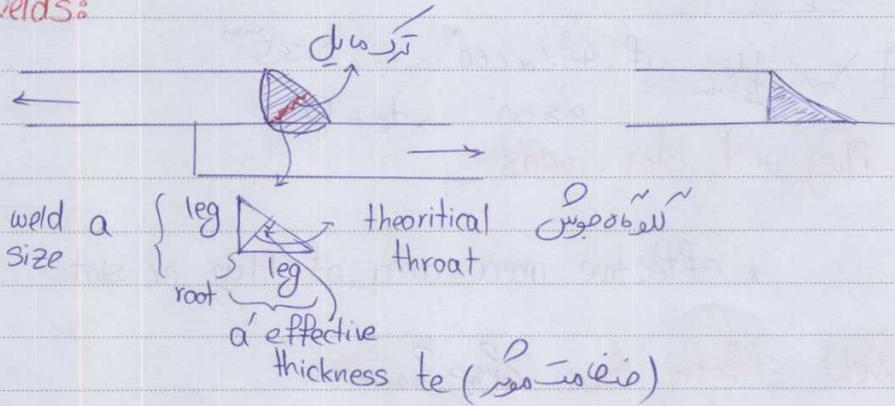 elds:
ترک مایل
weld a size
leg
theoritical throat
گلوگاه جوش
root
leg
a' effective thickness te (ضخامت موثر)